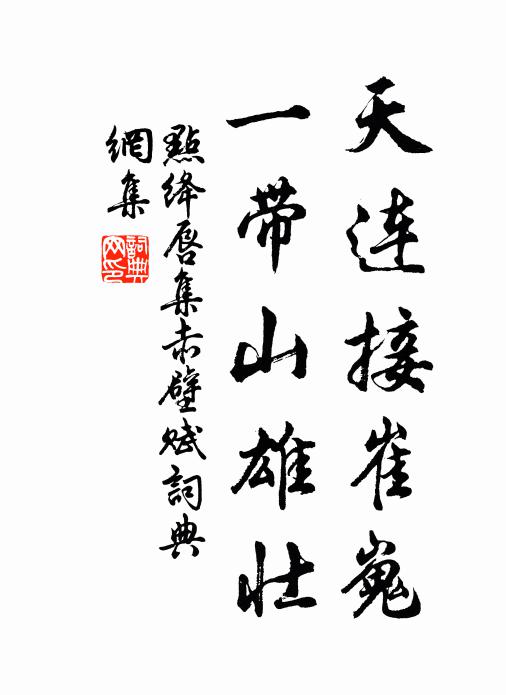 天连接崔嵬
一带山雄壮
點绛唇集赤壁赋詞典
網集
詞典网印